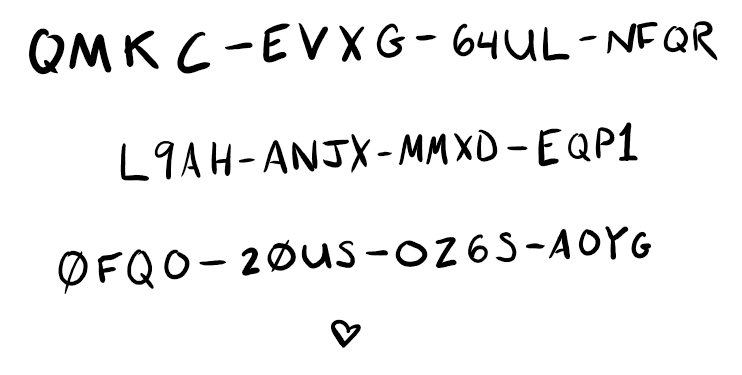 QMKC-EVXG-64UL-NFQR
L9AH-ANJX-MMXD-EQP1
ØFQO-2ØUS-OZ6S-AOYG
♡